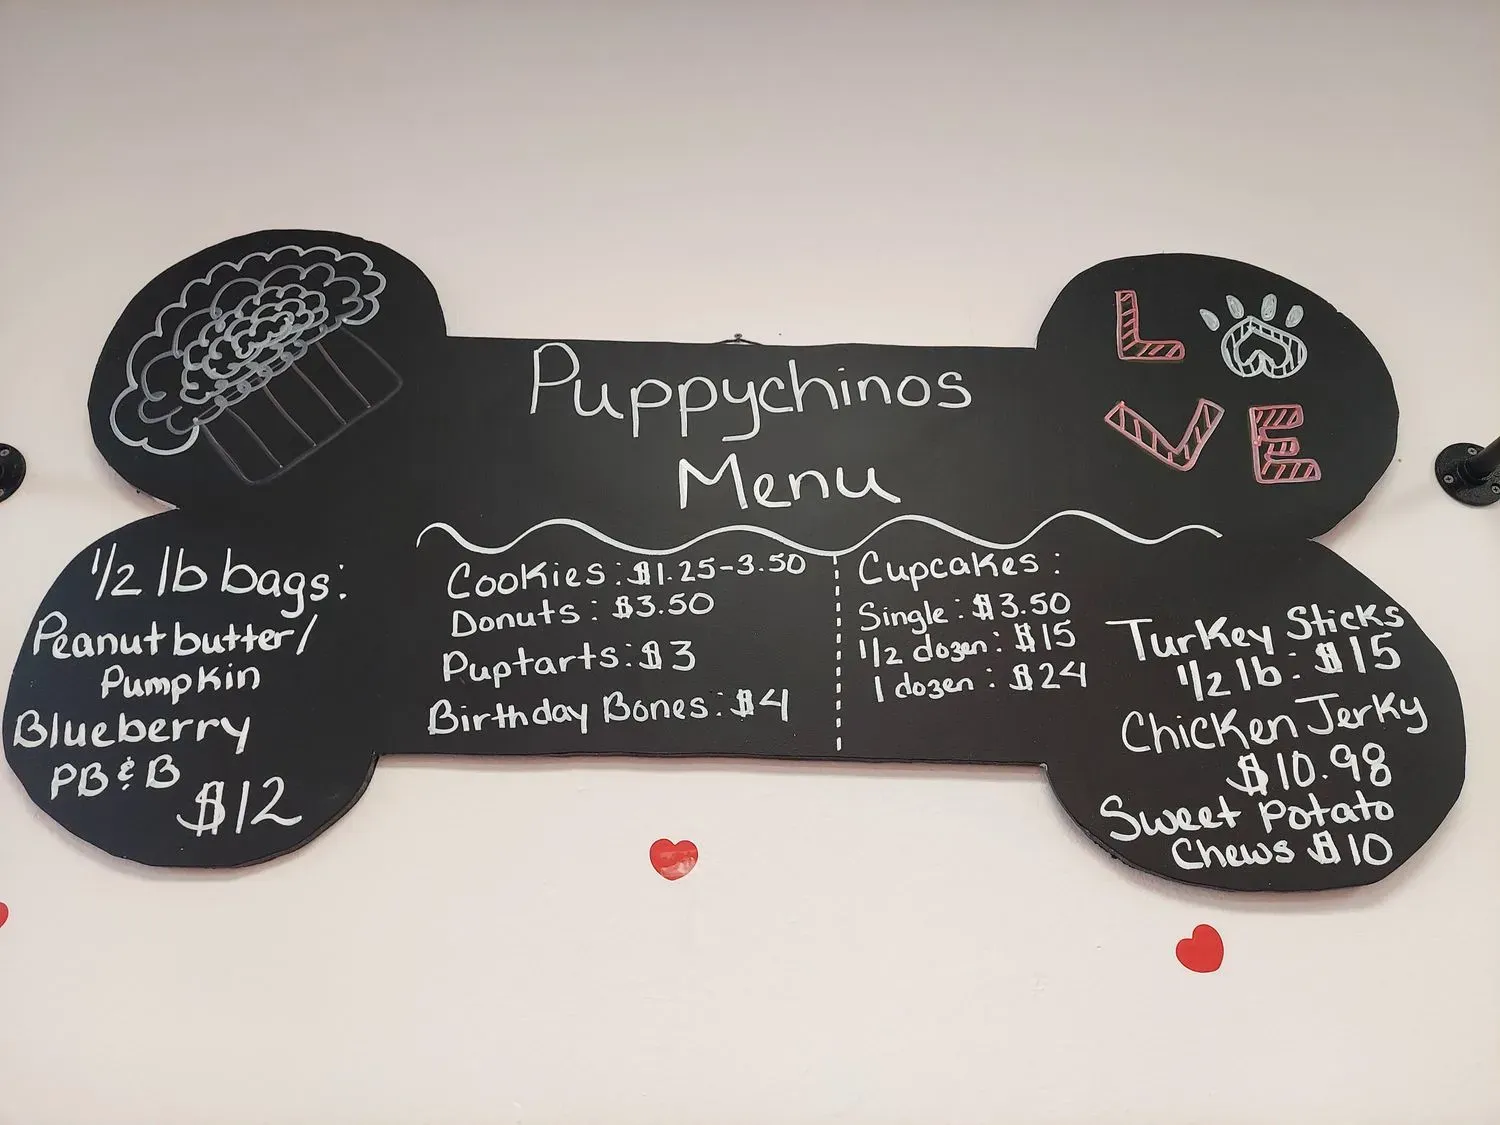 Puppychinos
Menu
L
VE
1/2 lb bags:
Peanut butter/
Pumpkin
Blueberry
PB & B
$12
Cookies: $1.25-3.50
Donuts: $3.50
Puptarts: $3
Birthday Bones: $4
Cupcakes:
Single: $3.50
1/2 dozen: $15
1 dozen: $24
Turkey Sticks
1/2 lb: $15
Chicken Jerky
$10.98
Sweet Potato
Chews $10